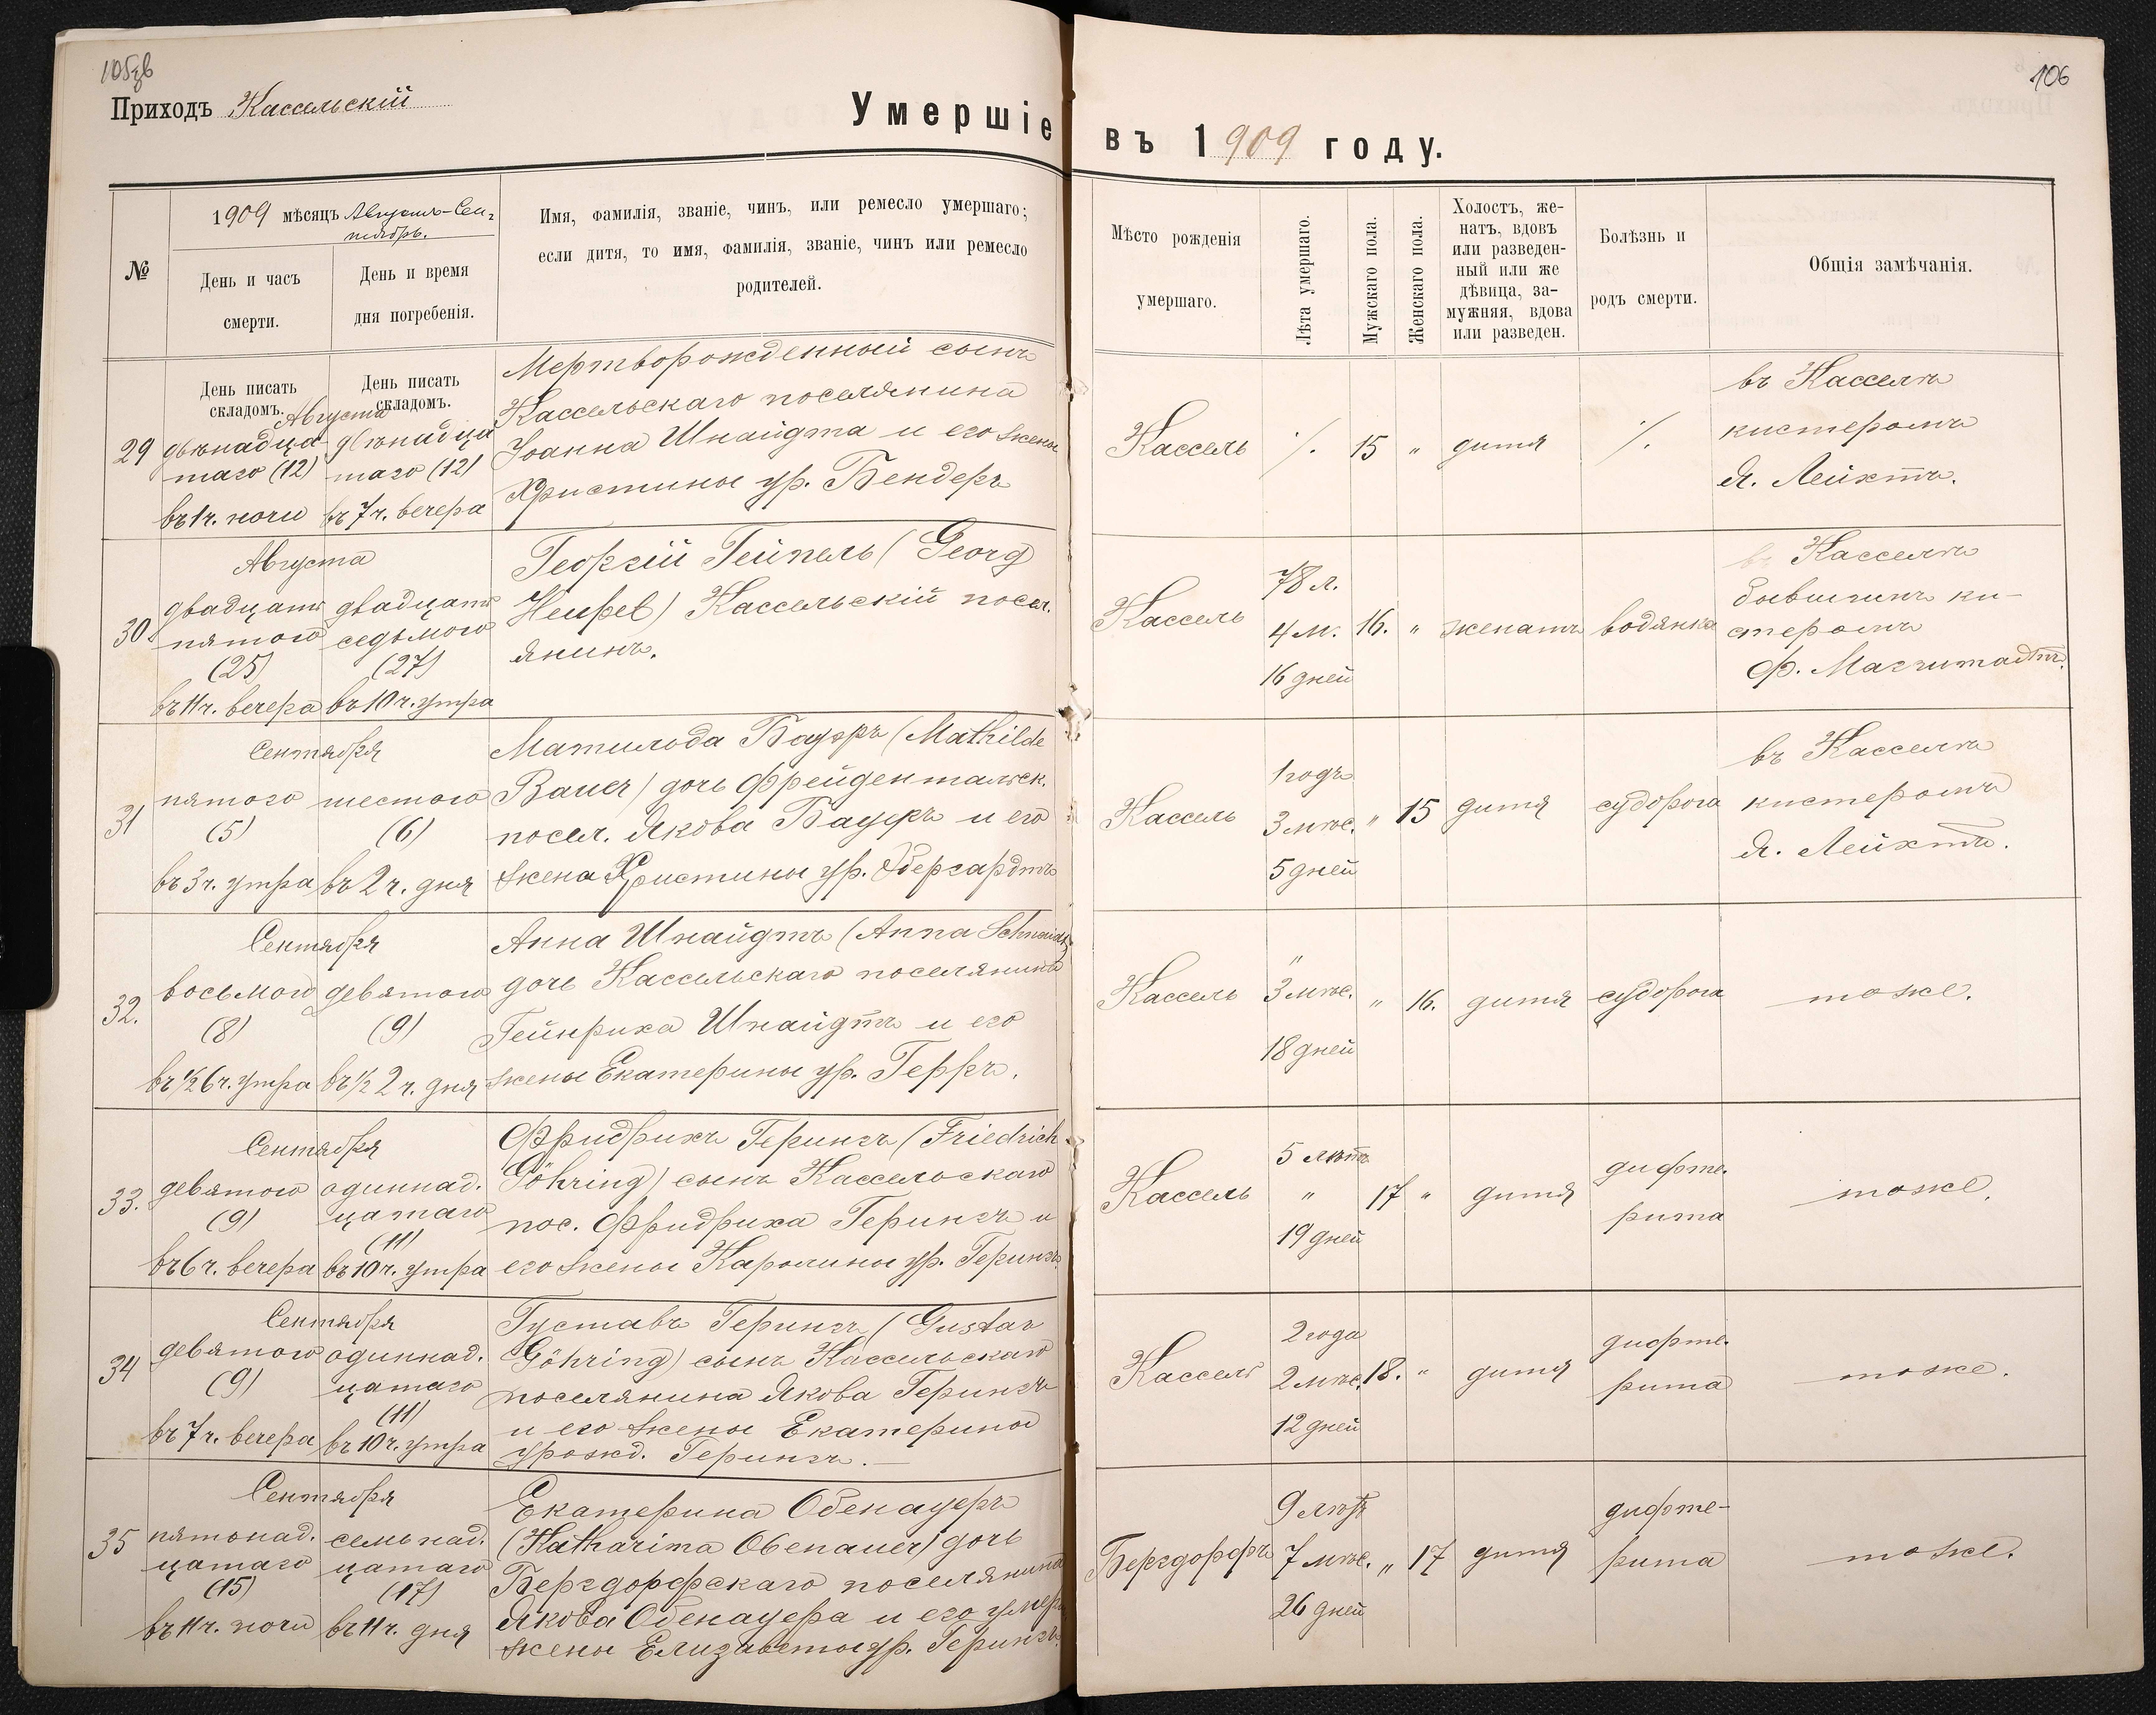 105об
106
Приходъ Кассельскій
Умершіе въ 1909 году.
№
1909 мѣсяцъ Августъ-Сен-
тябрь.
День и часъ
смерти.
День и время
дня погребенія.
Имя, фамилія, званіе, чинъ, или ремесло умершаго;
если дитя, то имя, фамилія, званіе, чинъ или ремесло
родителей.
Мѣсто рожденія
умершаго.
Лѣта умершаго.
Мужскаго пола.
Женскаго пола.
Холостъ, же-
натъ, вдовъ
или разведен-
ный или же
дѣвица, за-
мужняя, вдова
или разведен.
Болѣзнь и
родъ смерти.
Общія замѣчанія.
День писать
складомъ.
День писать
складомъ.
Августа
29
двѣнадца-
таго (12)
въ 1 ч. ночи
двѣнадца
таго (12)
въ 7 ч. вечера
Мертворожденный сынъ
Кассельскаго поселянина
Іоанна Шнайдта и его жены
Христины ур. Бендеръ
Кассель
٪
15
"
дитя
٪
въ Касселѣ
кистеромъ
Я. Лейхтъ.
Августа
30.
двадцать
пятого
(25)
въ 11 ч. вечера
двадцать
седьмого
(27)
въ 10 ч. утра
Георгій Гейпель (Georg
Heupel) Кассельскій посел.
янинъ.
Кассель
78 л.
4 м.
16 дней
16.
"
женатъ
водянка
въ Касселѣ
бывшимъ ки-
стеромъ
Сентября
31
пятого
(5)
въ 3 ч. утра
шестого
(6)
въ 2 ч. дня
Матильда Бауэръ (Mathilde
Bauer) дочь Фрейдентальск.
посел. Якова Бауеръ и его
жена Христины ур. Эбергардтъ
Кассель
1 годъ
3 мѣс.
5 дней
"
15
дитя
судорога
въ Касселѣ
кистеромъ
Я. Лейхтъ.
Сентября
32.
восьмого
(8)
въ ½ 6 ч. утра
девятого
(9)
въ ½ 2 ч. дня
Анна Шнайдтъ (Anna Schneidt)
дочь Кассельскаго поселянина
Гейнриха Шнайдтъ и его
жены Екатерины ур. Герръ.
Кассель
"
3 мѣс.
18 дней
"
16.
дитя
судорога
тоже.
Сентября
33.
девятого
(9)
въ 6 ч. вечера
одиннад.
цатаго
(11)
въ 10 ч. утра
Фридрихъ Герингъ (Friedrich
Göhring) сынъ Кассельскаго
пос. Фридриха Герингъ и
его жены Каролины ур. Герингъ
Кассель
5 лѣтъ
"
19 дней
17
"
дитя
дифте.
рита
тоже.
Сентября
34
девятого
(9)
въ 7 ч. вечера
одиннад.
цатаго
(11)
въ 10 ч. утра
Густавъ Герингъ (Gustav
Göhring) сынъ Кассельскаго
поселянина Якова Герингъ
и его жены Екатерины
урожд. Герингъ. —
Кассель
2 года
2 мѣс.
12 дней
18.
"
дитя
дифте.
рита
тоже.
Сентября
35
пятонад.
цатаго
(15)
въ 11 ч. ночи
семьнад.
цатаго
(17)
въ 11 ч. дня
Екатерина Обенауеръ
(Katharina Obenauer) дочь
Бергдорфскаго поселянина
Якова Обенауера и его умер.
жены Елизаветы ур. Герингъ.
Бергдорфъ
9 лѣтъ
7 мѣс.
26 дней
"
17
дитя
дифте-
рита
тоже.